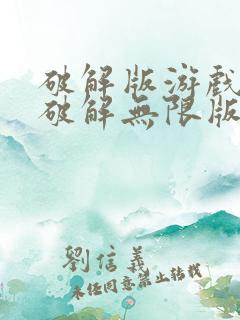 破解版游戲
破解無限版
劉信義
未經同意禁止轉載